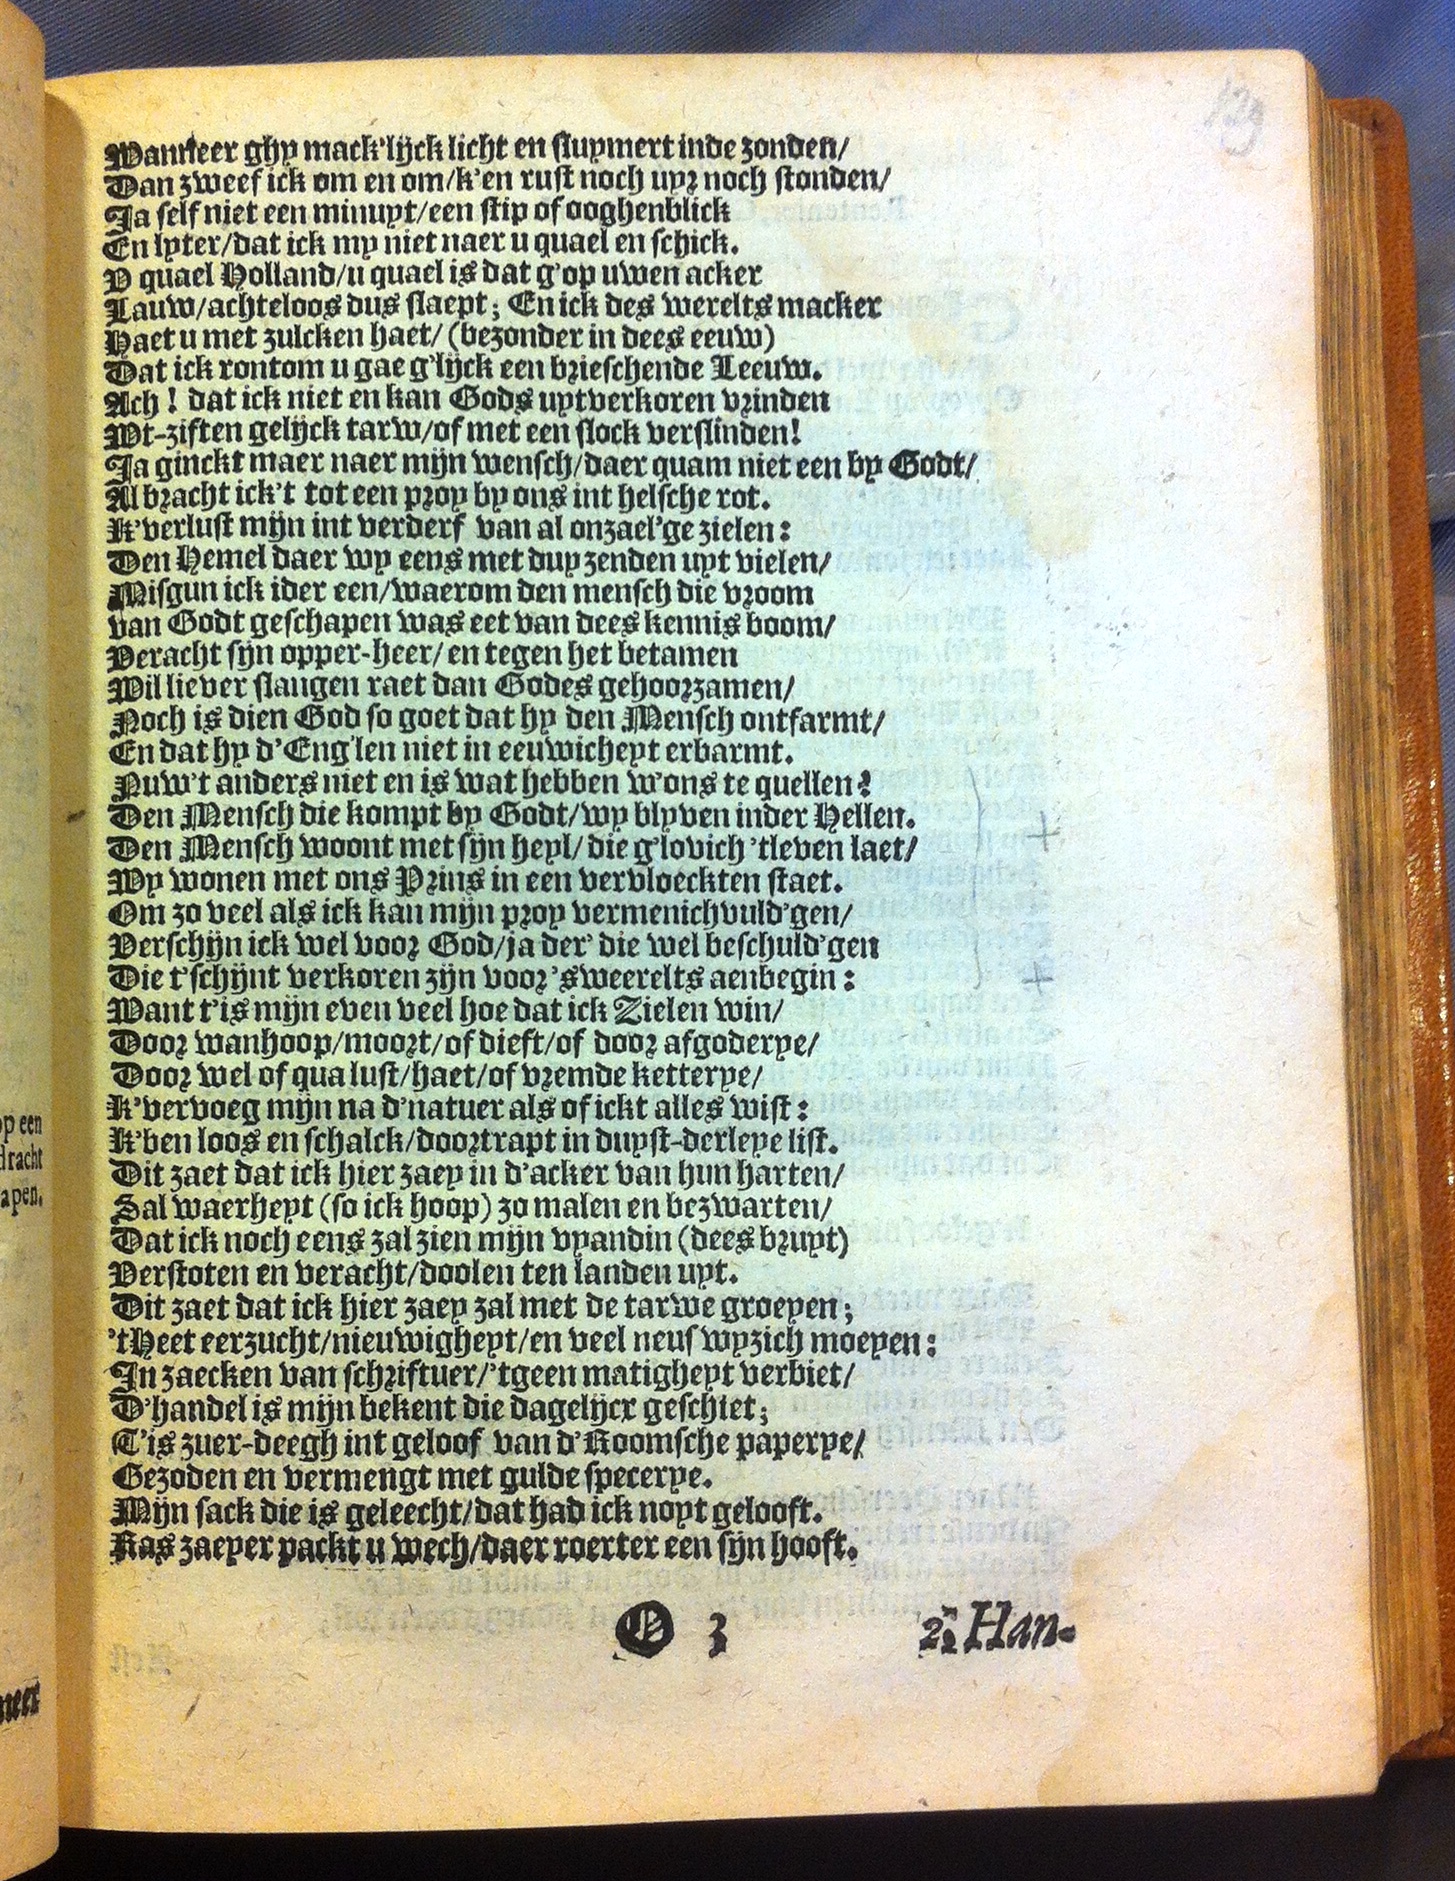 129
Wanneer ghy mack'lijck licht en sluymert inde zonden/
Dan zweef ick om en om/k'en rust noch uyr noch stonden/
Ja self niet een minuyt/een stip of ooghenblick
En lyter/dat ick my niet naer u quael en schick.
V quael Holland/u quael is dat g'op uwen acker
Lauw/achteloos dus slaept; En ick des werelts macker
Haet u met zulcken haet/ (bezonder in dees eeuw)
Dat ick rontom u gae g'lijck een brieschende Leeuw.
Ach! dat ick niet en kan Gods uytverkoren vrinden
Wt-ziften gelijck tarw/of met een slock verslinden!
Ja ginckt maer naer mijn wensch/daer quam niet een by Godt/
Al bracht ick't tot een proy by ons int helsche rot.
K'verlust mijn int verderf van al onzael'ge zielen:
Den Hemel daer wy eens met duyzenden uyt vielen/
Misgun ick ider een/waerom den mensch die vroom
van Godt geschapen was eet van dees kennis boom/
Veracht sijn opper-heer/en tegen het betamen
Wil liever slangen raet dan Godes gehoorzamen/
Noch is dien God so goet dat hy den Mensch ontfarmt/
En dat hy d'Eng'len niet in eeuwicheyt erbarmt.
Nuw't anders niet en is wat hebben w'ons te quellen?
Den Mensch die kompt by Godt/wy blyven inder Hellen.
Den Mensch woont met sijn heyl/die g'lovich 'tleven laet/
Wy wonen met ons Prins in een vervloeckten staet.
Om zo veel als ick kan mijn proy vermenichvuld'gen/
Verschijn ick wel voor God/ja der' die wel beschuld'gen
Die t'schijnt verkoren zijn voor 'sweerelts aenbegin:
Want t'is mijn even veel hoe dat ick Zielen win/
Door wanhoop/moort/of dieft/of door afgoderye/
Door wel of qua lust/haet/of vremde ketterye/
K'vervoeg mijn na d'natuer als of ickt alles wist:
K'ben loos en schalck/doortrapt in duyst-derleye list.
Dit zaet dat ick hier zaey in d'acker van hun harten/
Sal waerheyt (so ick hoop) zo malen en bezwarten/
Dat ick noch eens zal zien mijn vyandin (dees bruyt)
Verstoten en veracht/doolen ten landen uyt.
Dit zaet dat ick hier zaey zal met de tarwe groeyen;
'tHeet eerzucht/nieuwigheyt/en veel neus wyzich moeyen:
In zaecken van schriftuer/'tgeen matigheyt verbiet/
D'handel is mijn bekent die dagelijcx geschiet;
T'is zuer-deegh int geloof van d'Roomsche paperye/
Gezoden en vermengt met gulde specerye.
Mijn sack die is geleecht/dat had ick noyt gelooft.
Ras zaeyer packt u wech/daer roerter een sijn hooft.
O 3 2. Han-
op een
dracht
apen.